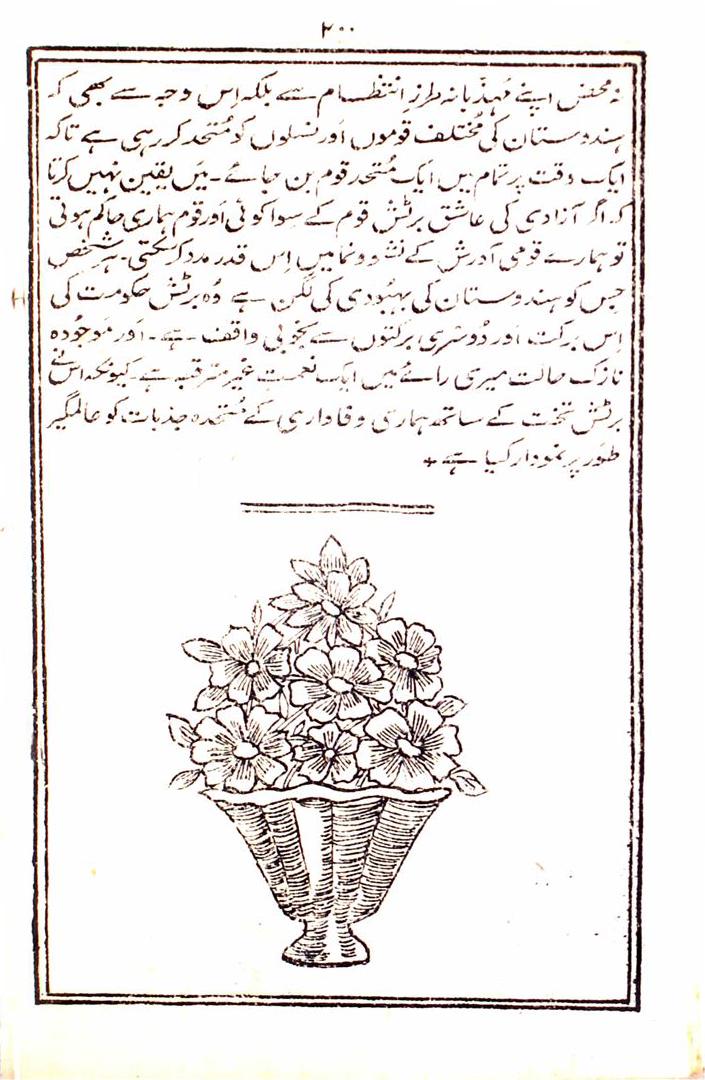 ۲۰۰
نہ محض اپنے مُہذّبانہ طرزِ انتظام سے بلکہ اِس وجہ سے بھی کہ
ہندوستان کی مُختلف قوموں اَور نسلوں کو مُتحد کر رہی ہے تاکہ
ایک وقت پر تمام ہیں ایک مُتحد قوم بن جائے۔ میَں یقین نہیں کرتا
کہ اگر آزادی کی عاشق برٹش قوم کے سوا کوئی اَور قوم ہماری حاکم ہوتی
تو ہمارے قومی آدرش کے نشوونما میں اِس قدر مدد کر سکتی۔ ہر شخص
جس کو ہندوستان کی بہبُودی کی لگن ہے وُہ برٹش حکومت کی
اِس برکت اَور دُوسری برکتوں سے بخوبی واقف ہے۔ اَور مَوجُودہ
نازک حالت میری رائے میں ایک نعمتِ غیر مترقبہ ہے۔ کیونکہ اس نے
برٹش تخت کے ساتھ ہماری وفاداری کے مُتحدہ جذبات کو عالمگیر
طَور پر نمودار کیا ہے +